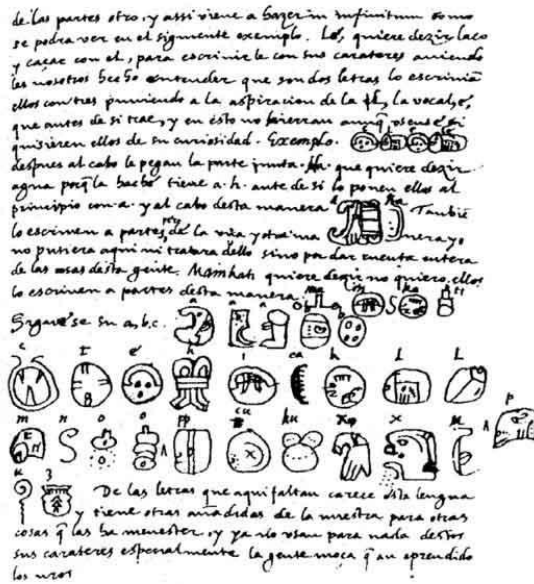 de las partes otro, y assi viene a hazer in infinitum como
se podra ver en el siguiente exemplo. Lé, quiere dezir laço
y caçar con el, para escrivirle con sus carateres aviendo
les nosotros hecho entender que son dos letras lo escrivian
ellos con tres puniendo a la aspiracion de la l, la vocal é,
que antes de si trae, y en esto no hierran aunq̃ si
quisieren ellos de su curiosidad. Exemplo. e l e lé
despues al cabo le pegan la parte junta. Ha. que quiere dezir
agua porq̃ la hache tiene a. h. ante de si lo ponen ellos al
principio con a. y al cabo desta manera a ha Tambiē
lo escriven a partes, de la una y otra ma nera yo
no pusiera aqui ni tratara dello sino por dar cuenta entera
de las cosas desta gente. Mainkati quiere dezir no quiero, ellos
lo escriven a partes desta manera. ma i n ka ti
Siguese su a, b, c. a a a b b
c t é h i ca k l l
m n o o pp cu ku x x u p
u z De las letras que aqui faltan carece esta lengua
y tiene otras añadidas de la nuestra para otras
cosas q̃ las ha menester, y ya no usan para nada destos
sus carateres especialmente la gente moça q̃ an aprendido
los nr̃os